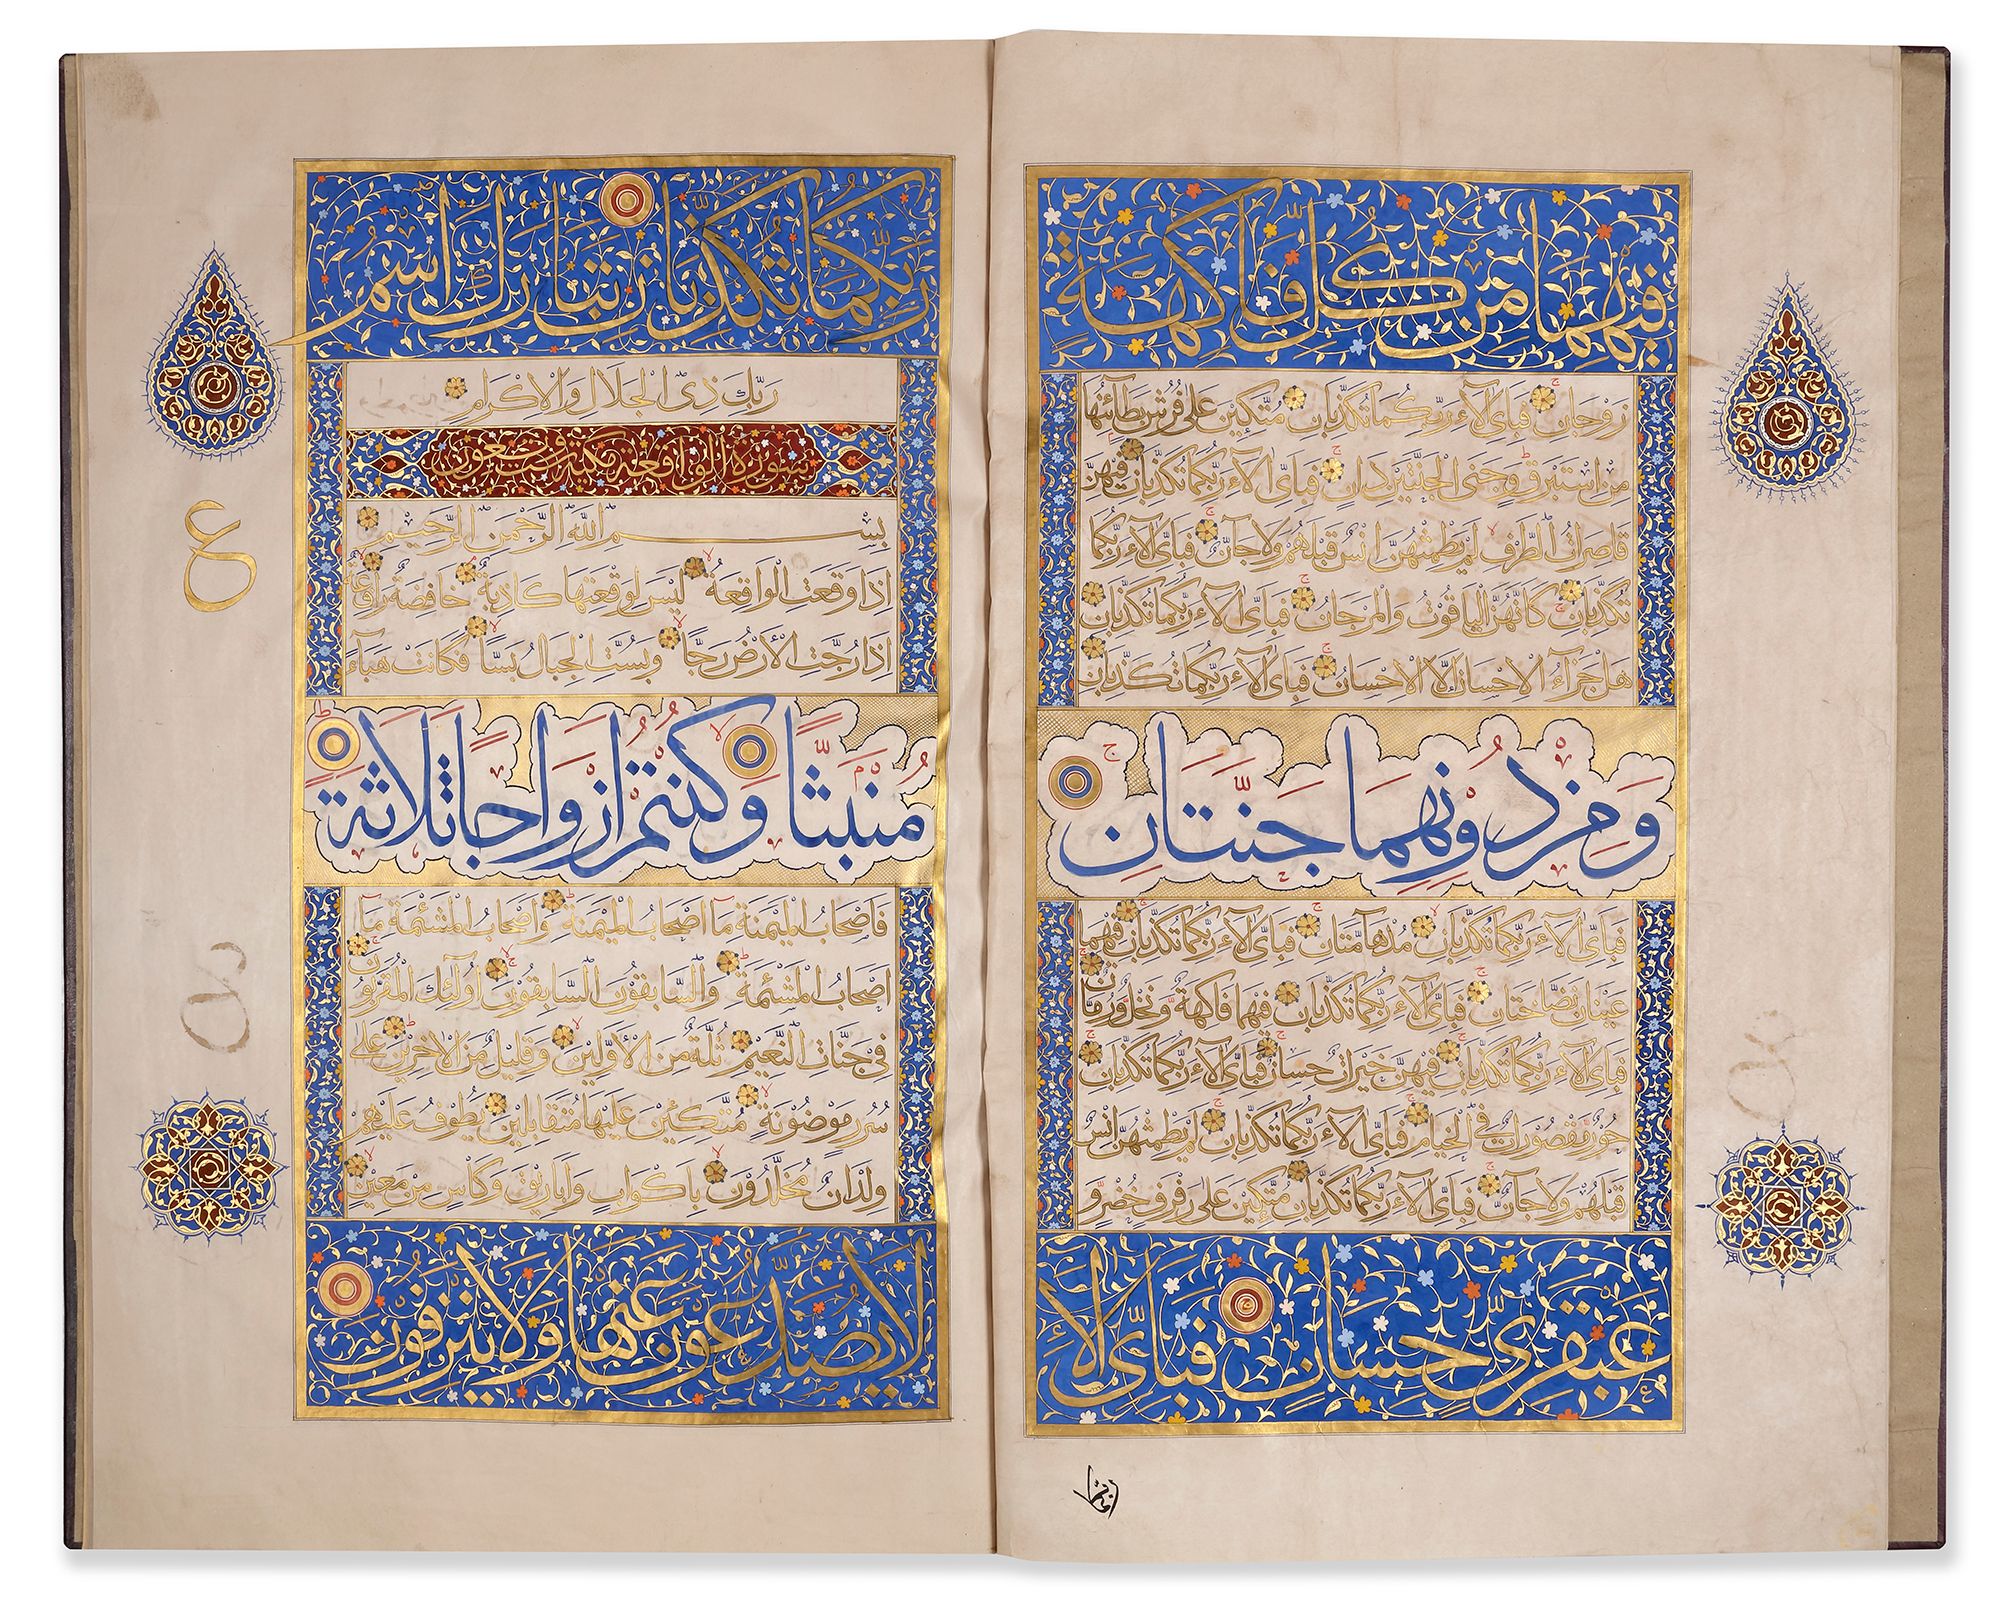 فيهما من كل فاكهة
زوجان فباي الآء ربكما تكذبان متكئين على فرش بطآئنها
من استبرق وجنى الجنتين دان فباي الآء ربكما تكذبان فيهن
قاصرات الطرف لم يطمثهن انس قبلهم ولا جآن فباي الآء ربكما
تكذبان كانهن الياقوت والمرجان فباي الآء ربكما تكذبان
هل جزآء الاحسان الا الاحسان فباي الآء ربكما تكذبان
ومن دونهما جنتان
فباي الآء ربكما تكذبان مدهآمتان فباي الآء ربكما تكذبان فيهما
عينان نضاختان فباي الآء ربكما تكذبان فيهما فاكهة ونخل ورمان
فباي الآء ربكما تكذبان فيهن خيرات حسان فباي الآء ربكما تكذبان
حور مقصورات في الخيام فباي الآء ربكما تكذبان لم يطمثهن انس
قبلهم ولا جآن فباي الآء ربكما تكذبان متكئين على رفرف خضر و
عبقري حسان فباي الآء
ربكما تكذبان تبارك اسم
ربك ذي الجلال والاكرام
سورة الواقعة مكية وست وتسعون
بسم الله الرحمن الرحيم
اذا وقعت الواقعة ليس لوقعتها كاذبة خافضة رافعة
اذا رجت الارض رجا وبست الجبال بسا فكانت هباء
منبثا وكنتم ازواجا ثلاثة
فاصحاب الميمنة مآ اصحاب الميمنة واصحاب المشئمة مآ
اصحاب المشئمة والسابقون السابقون اولئك المقربون
في جنات النعيم ثلة من الاولين وقليل من الاخرين على
سرر موضونة متكئين عليها متقابلين يطوف عليهم
ولدان مخلدون باكواب واباريق وكأس من معين
لا يصدعون عنها ولا ينزفون
ع